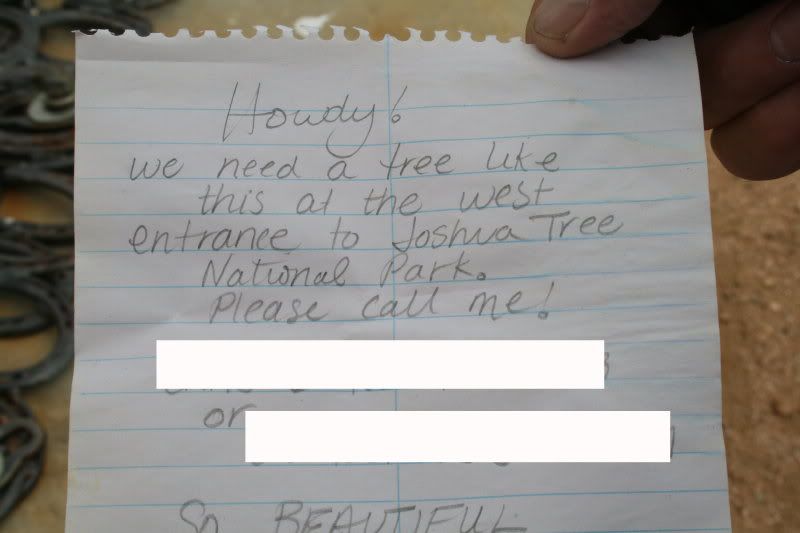 Howdy!
we need a tree like
this at the west
entrance to Joshua Tree
National Park.
Please call me!
or
So BEAUTIFUL